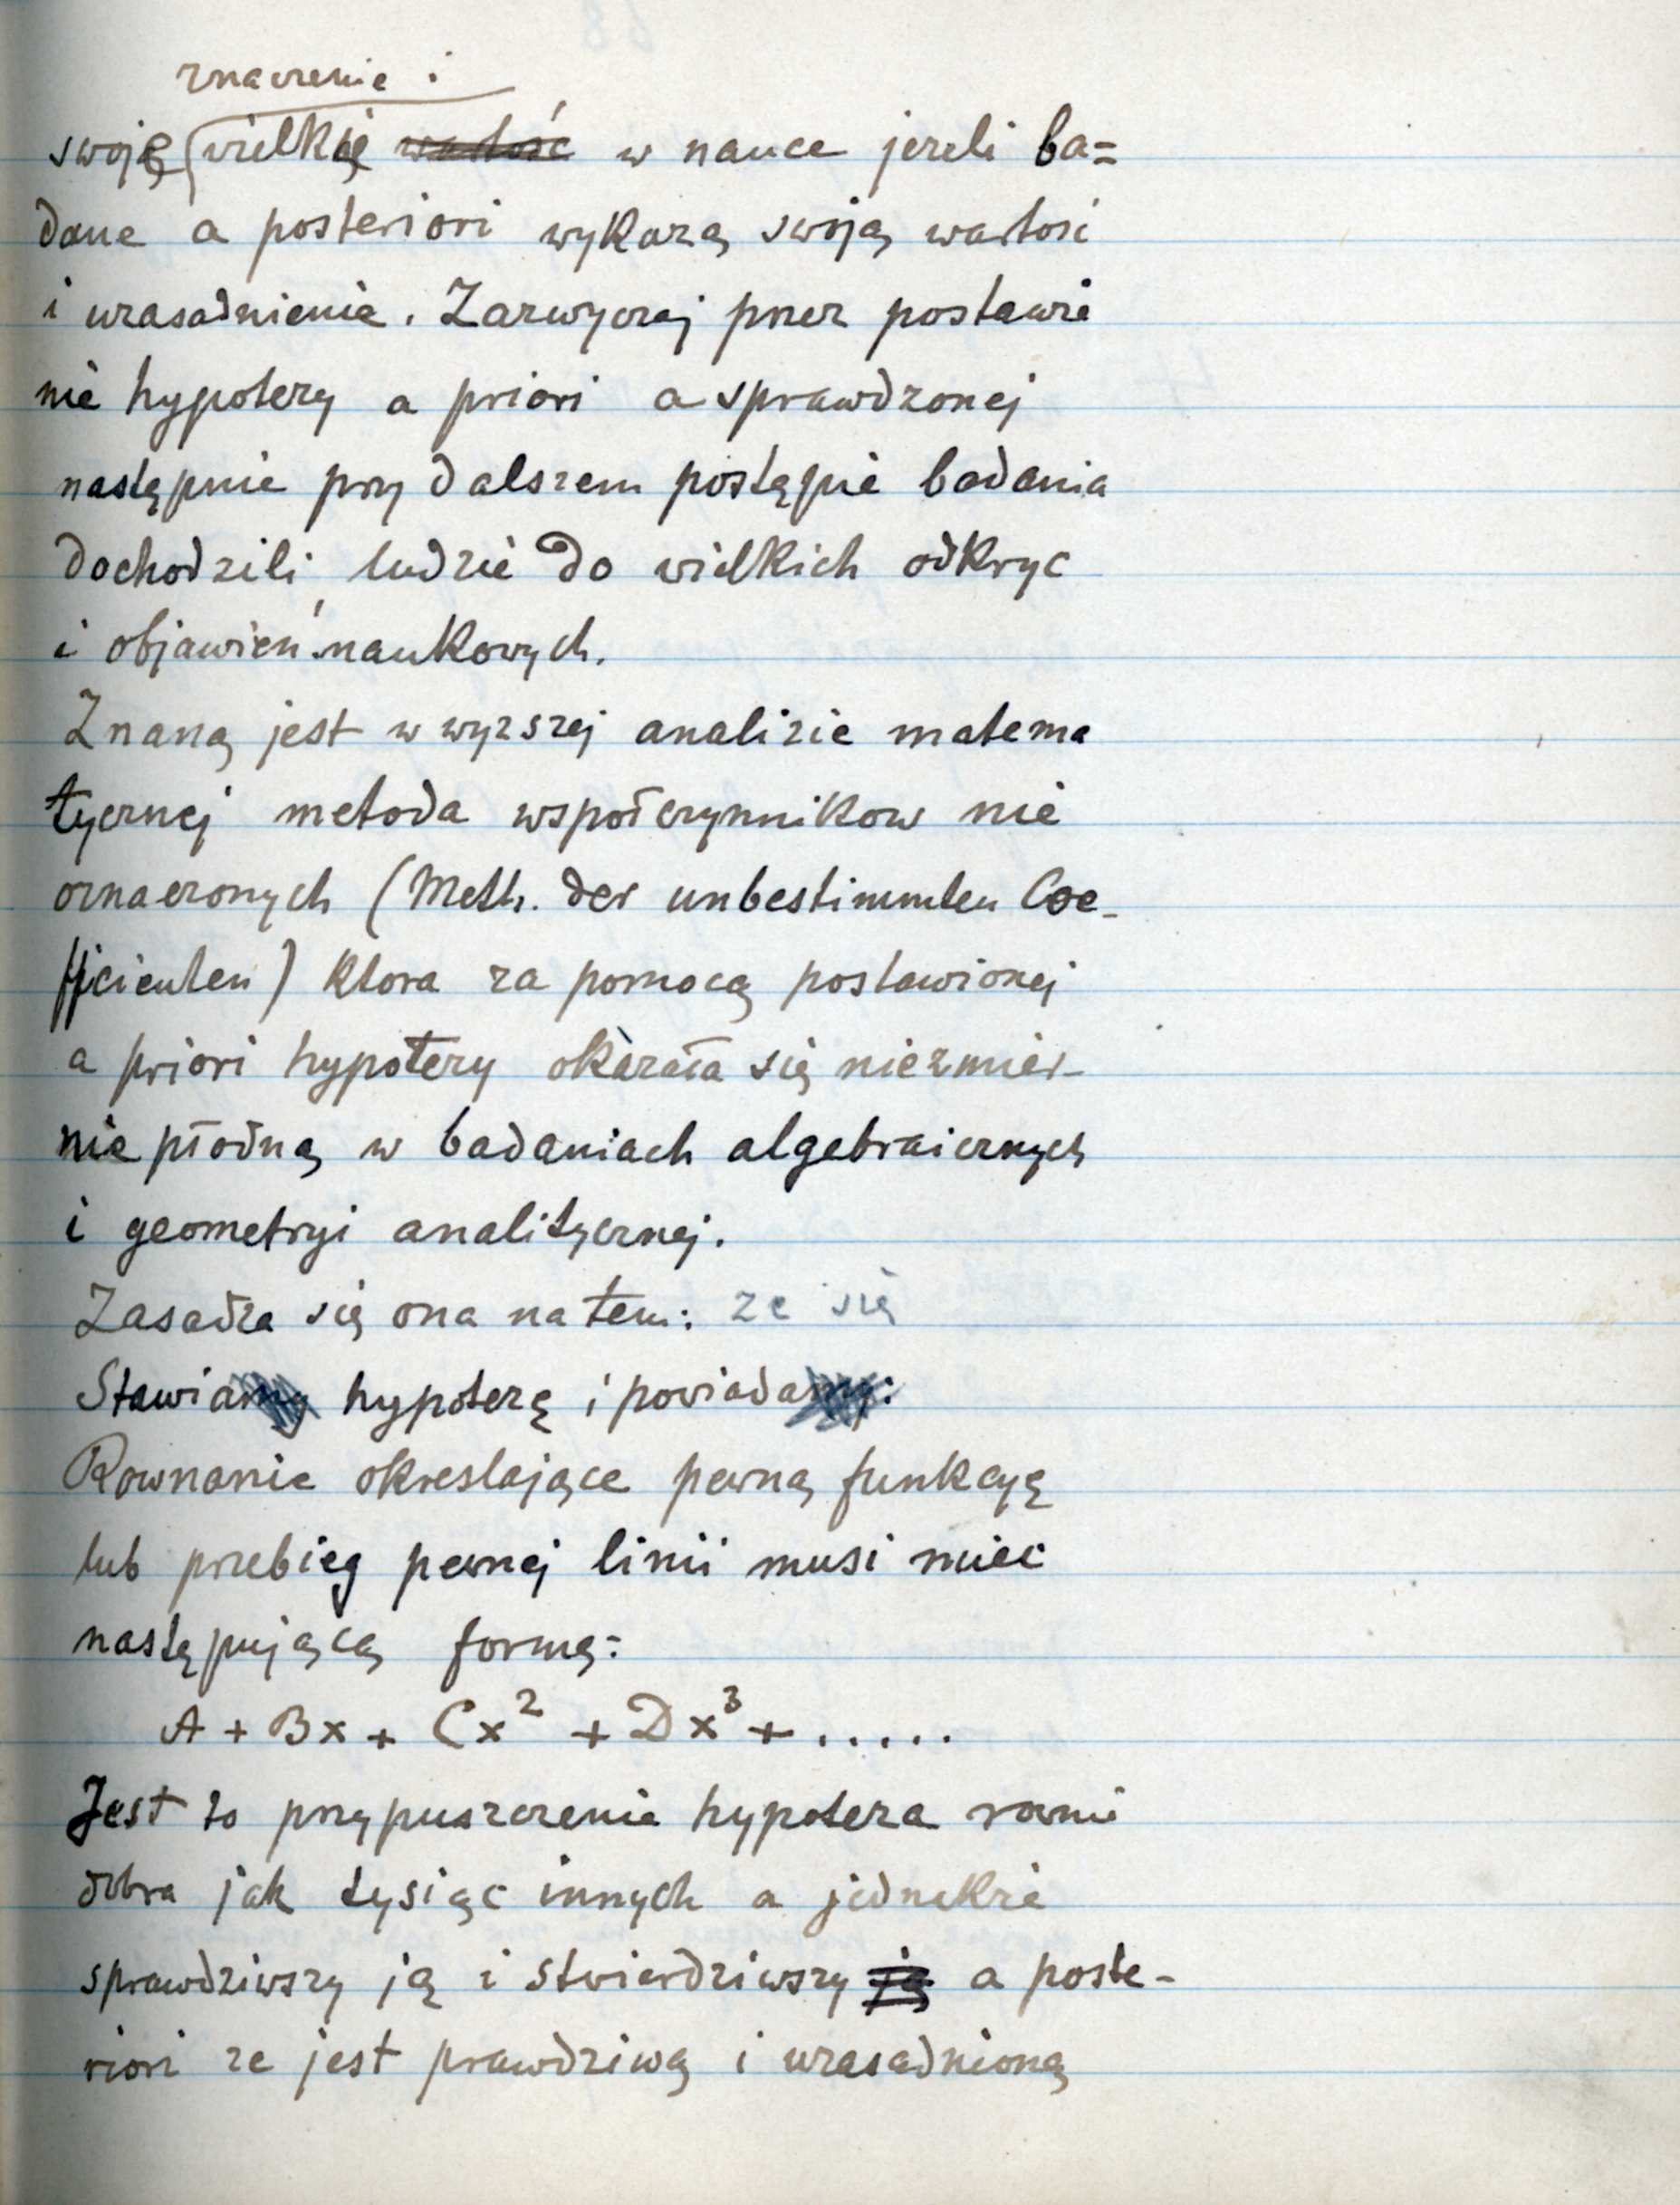 znaczenie i
swoje wielkie wartość w nauce jezeli ba=
dane a posteriori wykazą swoją wartosć
i uzasadnienie. Zazwyczaj przez postawie
nie hypotezy a priori a sprawdzonej
następnie przy dalszem postępie badania
dochodzili ludzie do wielkich odkryc
i objawień naukowych.
Znaną jest w wyzszej analizie matema
tycznej metoda wspołczynnikow nie
oznaczonych (Meth. der unbestimmten Coe-
fficienten) ktora za pomocą postawionej
a priori hypotezy okazała się niezmier-
nie płodną w badaniach algebraicznych
i geometryi analitycznej.
Zasadza się ona na tem: ze się
Stawiamy hypotezę i powiadamy:
Rownanie okreslające pewną funkcyę
lub przebieg pewnej linii musi miec
następującą formę:
A + Bx + Cx² + Dx³ + .....
Jest to przypuszczenie hypoteza rownie
dobra jak tysiąc innych a jednakze
sprawdziwszy ją i stwierdziwszy ją a poste-
riori ze jest prawdziwą i uzasadnioną